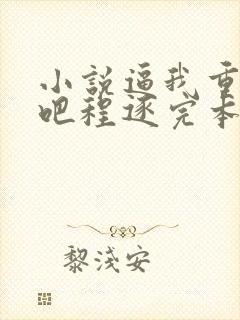 小說逼我重
吧程逐完本
黎淺安